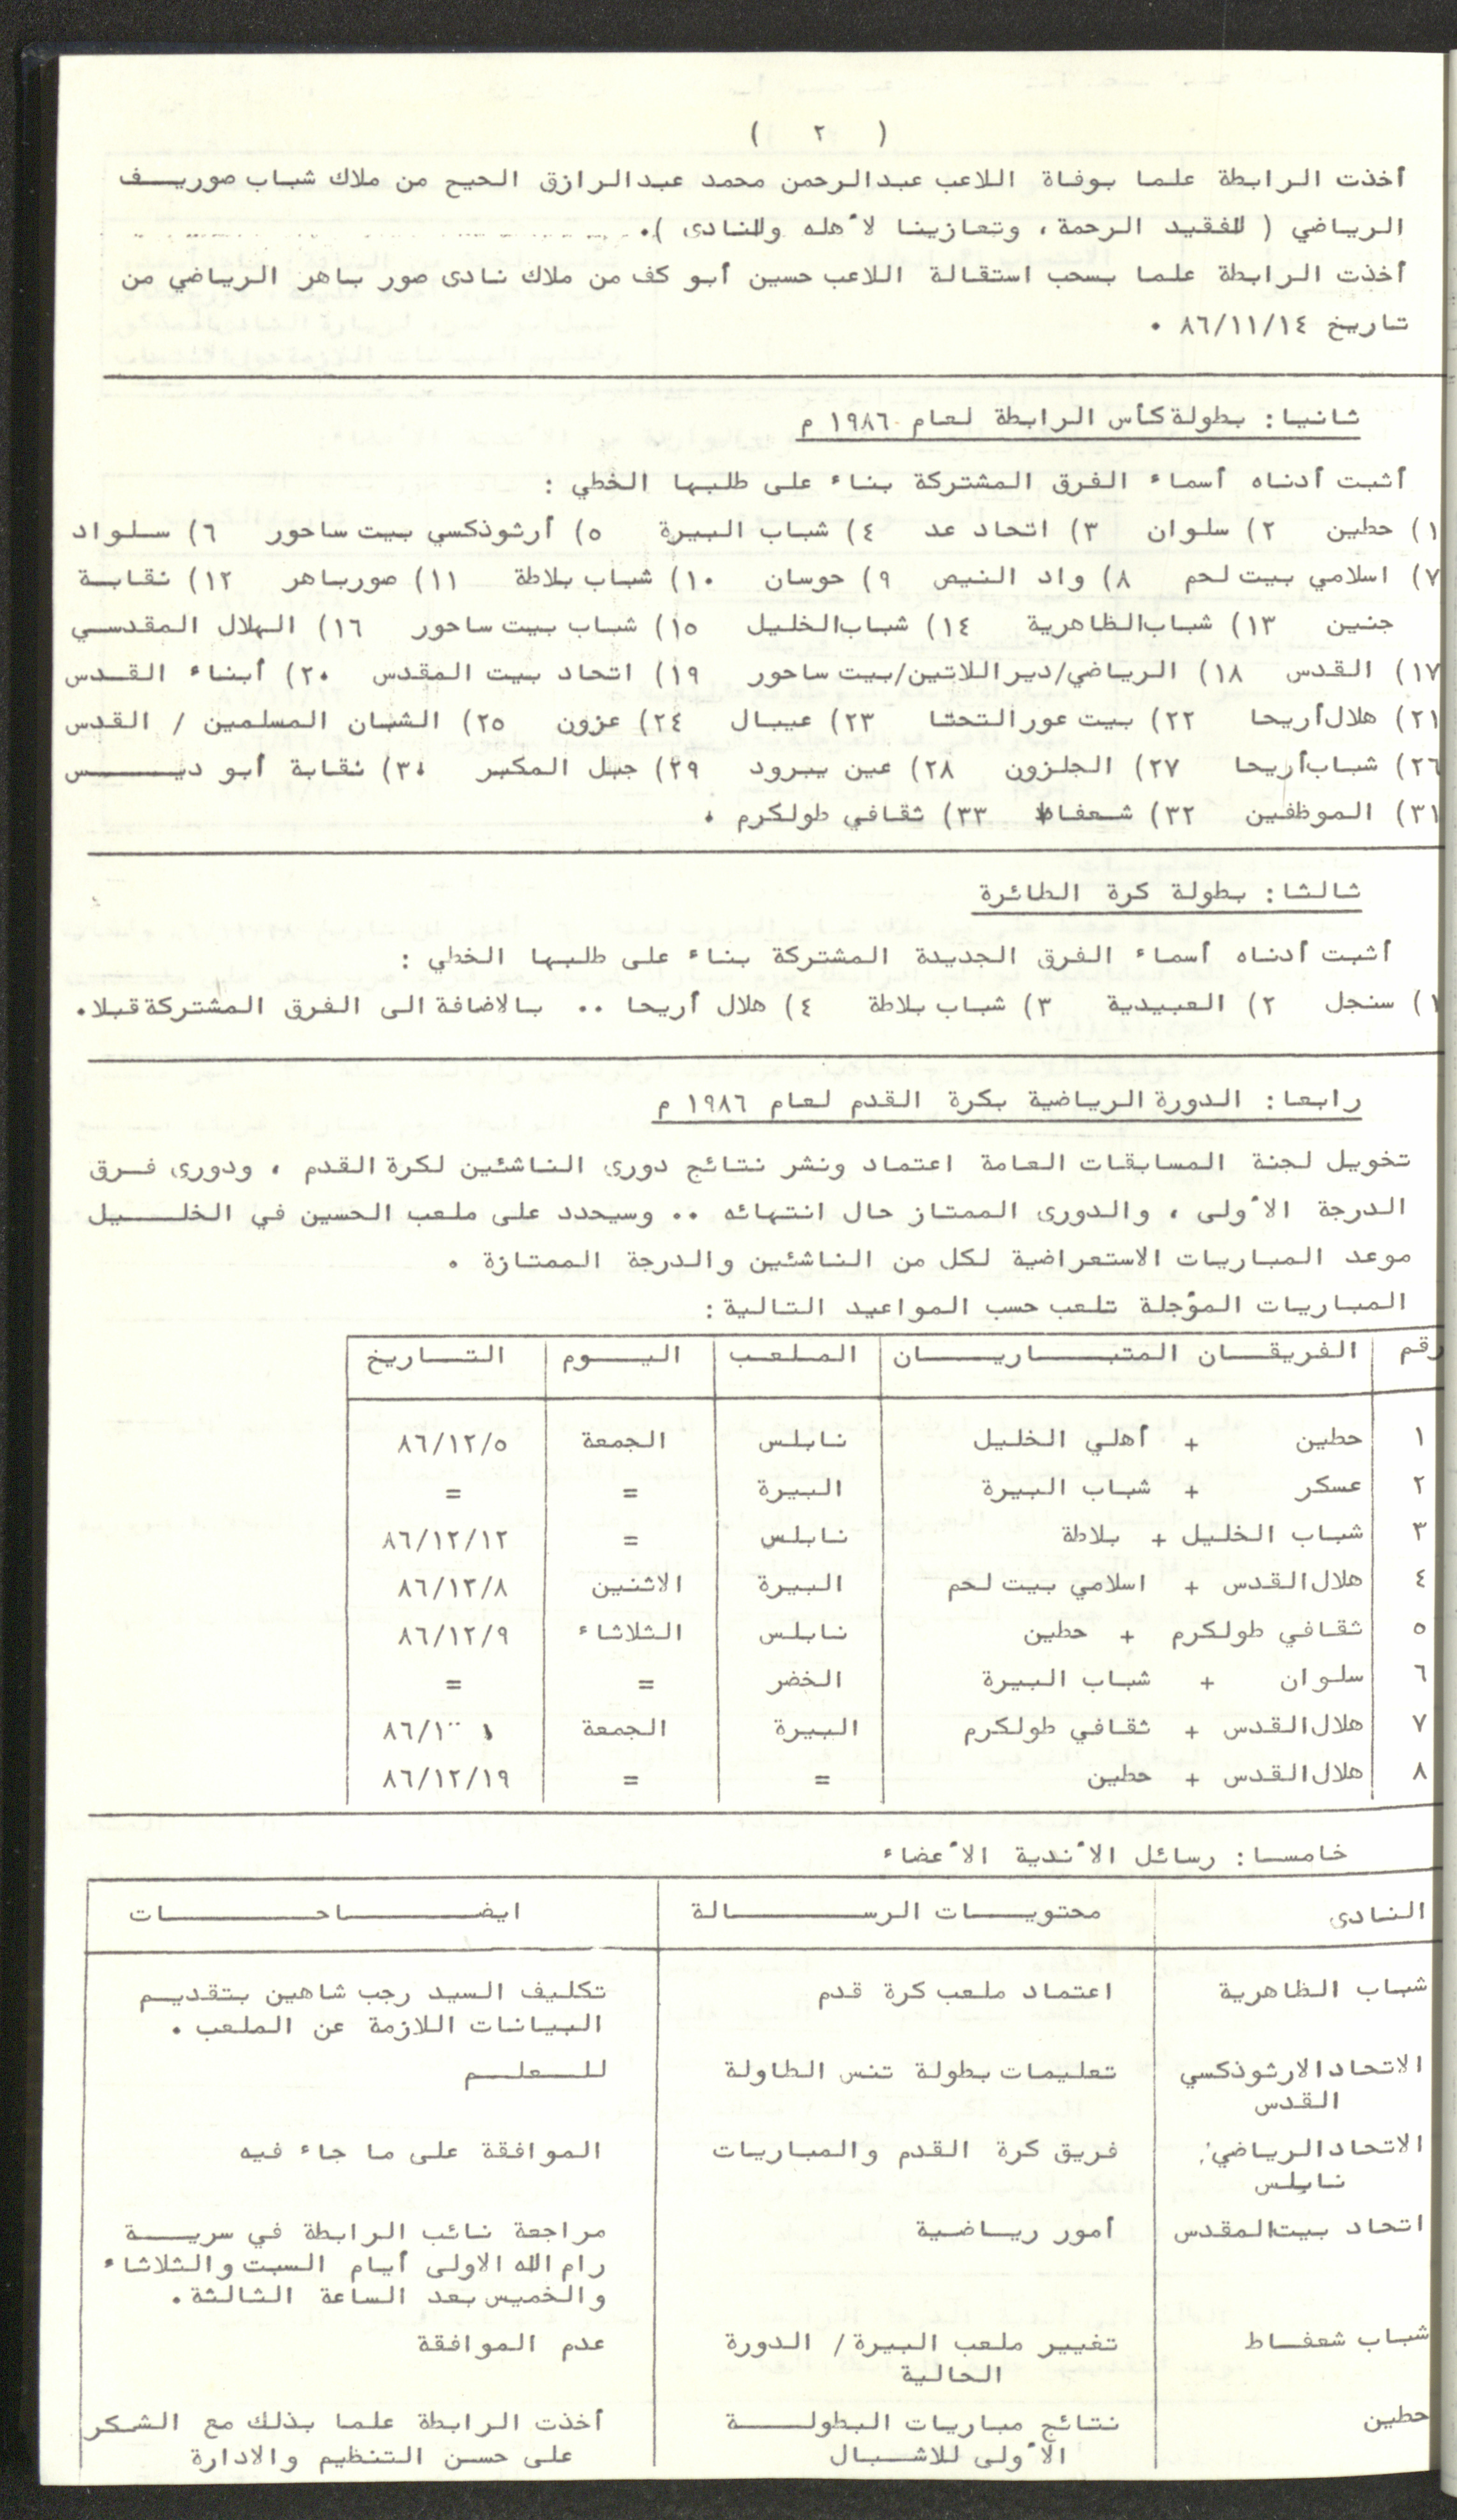 ( ٢ )
أخذت الرابطة علما بوفاة اللاعب عبدالرحمن محمد عبدالرازق الحيح من ملاك شباب صوريف
الرياضي ( للفقيد الرحمة ، وتعازينا لأهله وللنادى ).
أخذت الرابطة علما بسحب استقالة اللاعب حسين أبو كف من ملاك نادى صور باهر الرياضي من
تاريخ ٨٦/١١/١٤ .
ثانيا: بطولة كأس الرابطة لعام ١٩٨٦ م
أثبت أدناه أسماء الفرق المشتركة بناء على طلبها الخطي :
١) حطين ٢) سلوان ٣) اتحاد عد ٤) شباب البيرة ٥) أرثوذكسي بيت ساحور ٦) سلواد
٧) اسلامي بيت لحم ٨) واد النيص ٩) حوسان ١٠) شباب بلاطة ١١) صورباهر ١٢) نقابة
جنين ١٣) شباب الظاهرية ١٤) شباب الخليل ١٥) شباب بيت ساحور ١٦) الهلال المقدسي
١٧) القدس ١٨) الرياضي/دير اللاتين/بيت ساحور ١٩) اتحاد بيت المقدس ٢٠) أبناء القدس
٢١) هلال أريحا ٢٢) بيت عور التحتا ٢٣) عيبال ٢٤) عزون ٢٥) الشبان المسلمين / القدس
٢٦) شباب أريحا ٢٧) الجلزون ٢٨) عين يبرود ٢٩) جبل المكبر ٣٠) نقابة أبو ديس
٣١) الموظفين ٣٢) شعفاط ٣٣) ثقافي طولكرم .
ثالثا: بطولة كرة الطائرة
أثبت أدناه أسماء الفرق الجديدة المشتركة بناء على طلبها الخطي :
١) سنجل ٢) العبيدية ٣) شباب بلاطة ٤) هلال أريحا .. بالاضافة الى الفرق المشتركة قبلا.
رابعا: الدورة الرياضية بكرة القدم لعام ١٩٨٦ م
تخويل لجنة المسابقات العامة اعتماد ونشر نتائج دورى الناشئين لكرة القدم ، ودورى فرق
الدرجة الأولى ، والدورى الممتاز حال انتهائه .. وسيحدد على ملعب الحسين في الخليل
موعد المباريات الاستعراضية لكل من الناشئين والدرجة الممتازة .
المباريات المؤجلة تلعب حسب المواعيد التالية:
رقم الفريقان المتباريان الملعب اليوم التاريخ
١ حطين + أهلي الخليل نابلس الجمعة ٨٦/١٢/٥
٢ عسكر + شباب البيرة البيرة = =
٣ شباب الخليل + بلاطة نابلس = ٨٦/١٢/١٢
٤ هلال القدس + اسلامي بيت لحم البيرة الاثنين ٨٦/١٢/٨
٥ ثقافي طولكرم + حطين نابلس الثلاثاء ٨٦/١٢/٩
٦ سلوان + شباب البيرة الخضر = =
٧ هلال القدس + ثقافي طولكرم البيرة الجمعة
٨ هلال القدس + حطين = = ٨٦/١٢/١٩
خامسا: رسائل الأندية الأعضاء
النادى محتويات الرسالة ايضاحات
شباب الظاهرية اعتماد ملعب كرة قدم تكليف السيد رجب شاهين بتقديم
البيانات اللازمة عن الملعب .
الاتحاد الارثوذكسي تعليمات بطولة تنس الطاولة للعلم
القدس
الاتحاد الرياضي فريق كرة القدم والمباريات الموافقة على ما جاء فيه
نابلس
اتحاد بيت المقدس أمور رياضية مراجعة نائب الرابطة في سرية
رام الله الاولى أيام السبت والثلاثاء
والخميس بعد الساعة الثالثة .
شباب شعفاط تغيير ملعب البيرة / الدورة عدم الموافقة
الحالية
حطين نتائج مباريات البطولة أخذت الرابطة علما بذلك مع الشكر
الأولى للاشبال على حسن التنظيم والادارة